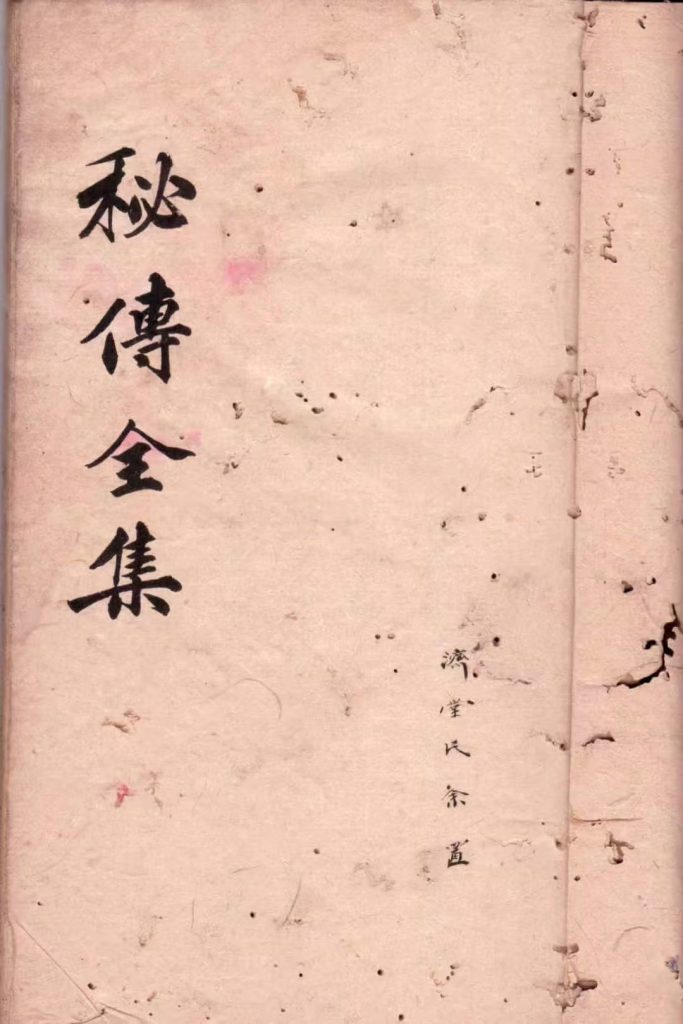 濟堂民余置
秘傳全集